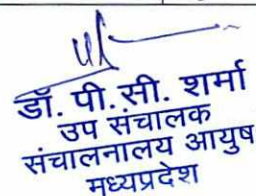 डॉ. पी. सी. शर्मा
उप संचालक
संचालनालय आयुष
मध्यप्रदेश